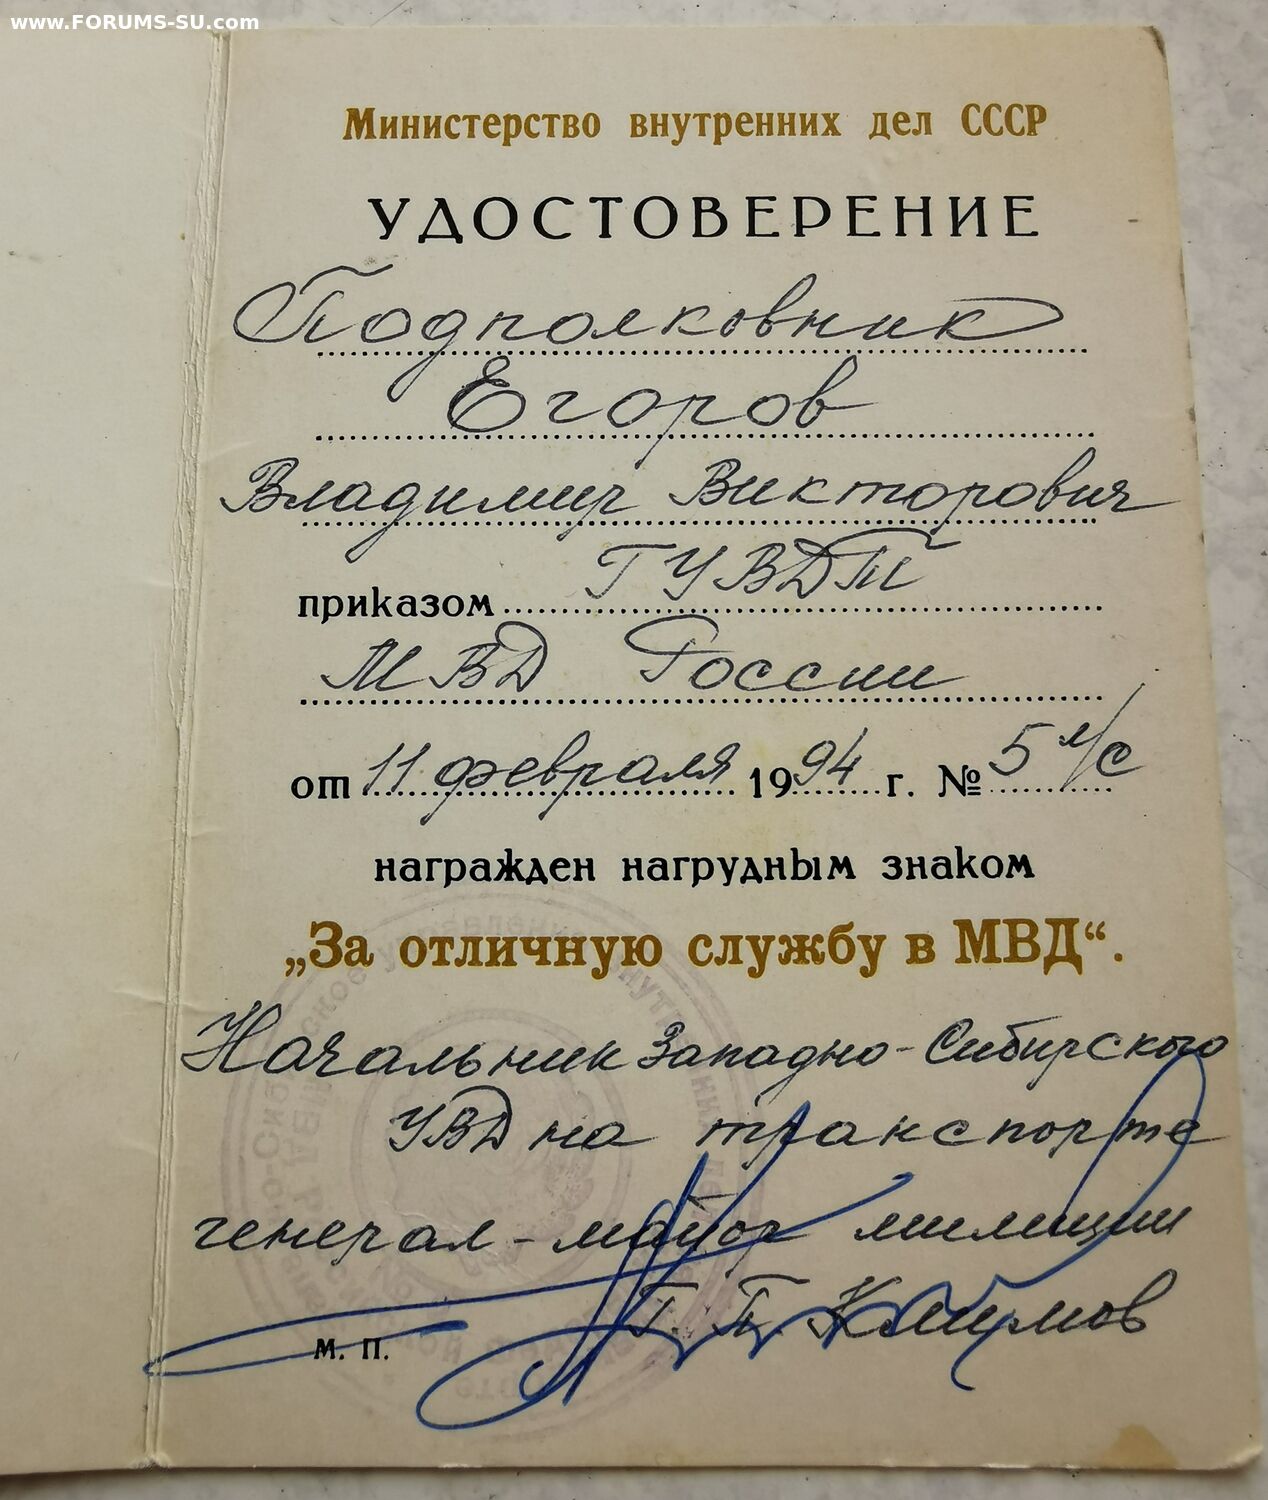 www.FORUMS-SU.com
Министерство внутренних дел СССР
УДОСТОВЕРЕНИЕ
Подполковник
Егоров
Владимир Викторович
приказом ГУВДТ
МВД России
от 11 февраля 1994 г. № 5 л/с
награжден нагрудным знаком
„За отличную службу в МВД“.
Начальник Западно-Сибирского
УВД на транспорте
генерал-майор милиции
Г. П. Климов
М. П.